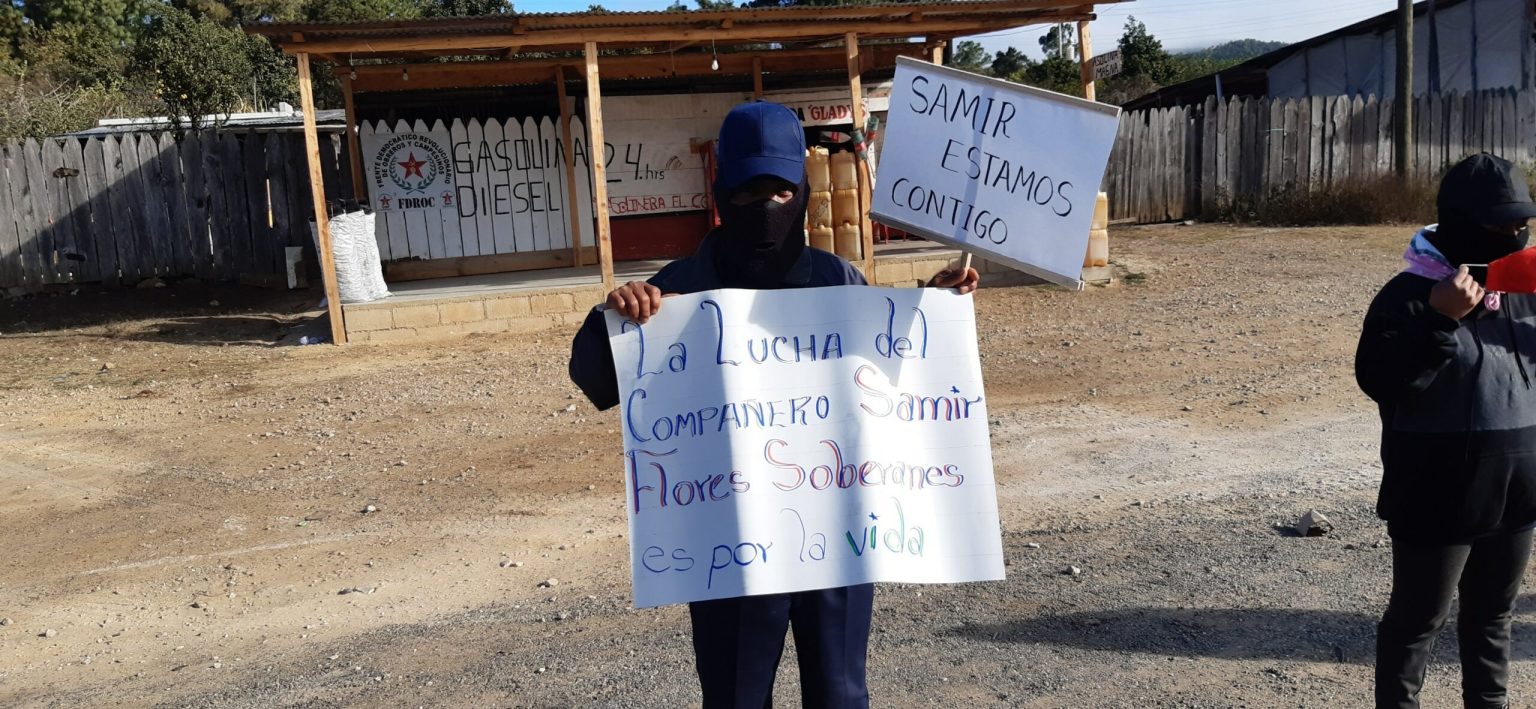 SAMIR
ESTAMOS
CONTIGO
La Lucha del
Compañero Samir
Flores Soberanes
es por la vida
FRENTE DEMOCRÁTICO REVOLUCIONARIO
DE OBREROS Y CAMPESINOS
FDROC
GASOLINA
DIESEL
24 hrs
GASOLINERA EL
"GLADY
GASOLINA
MAGNA